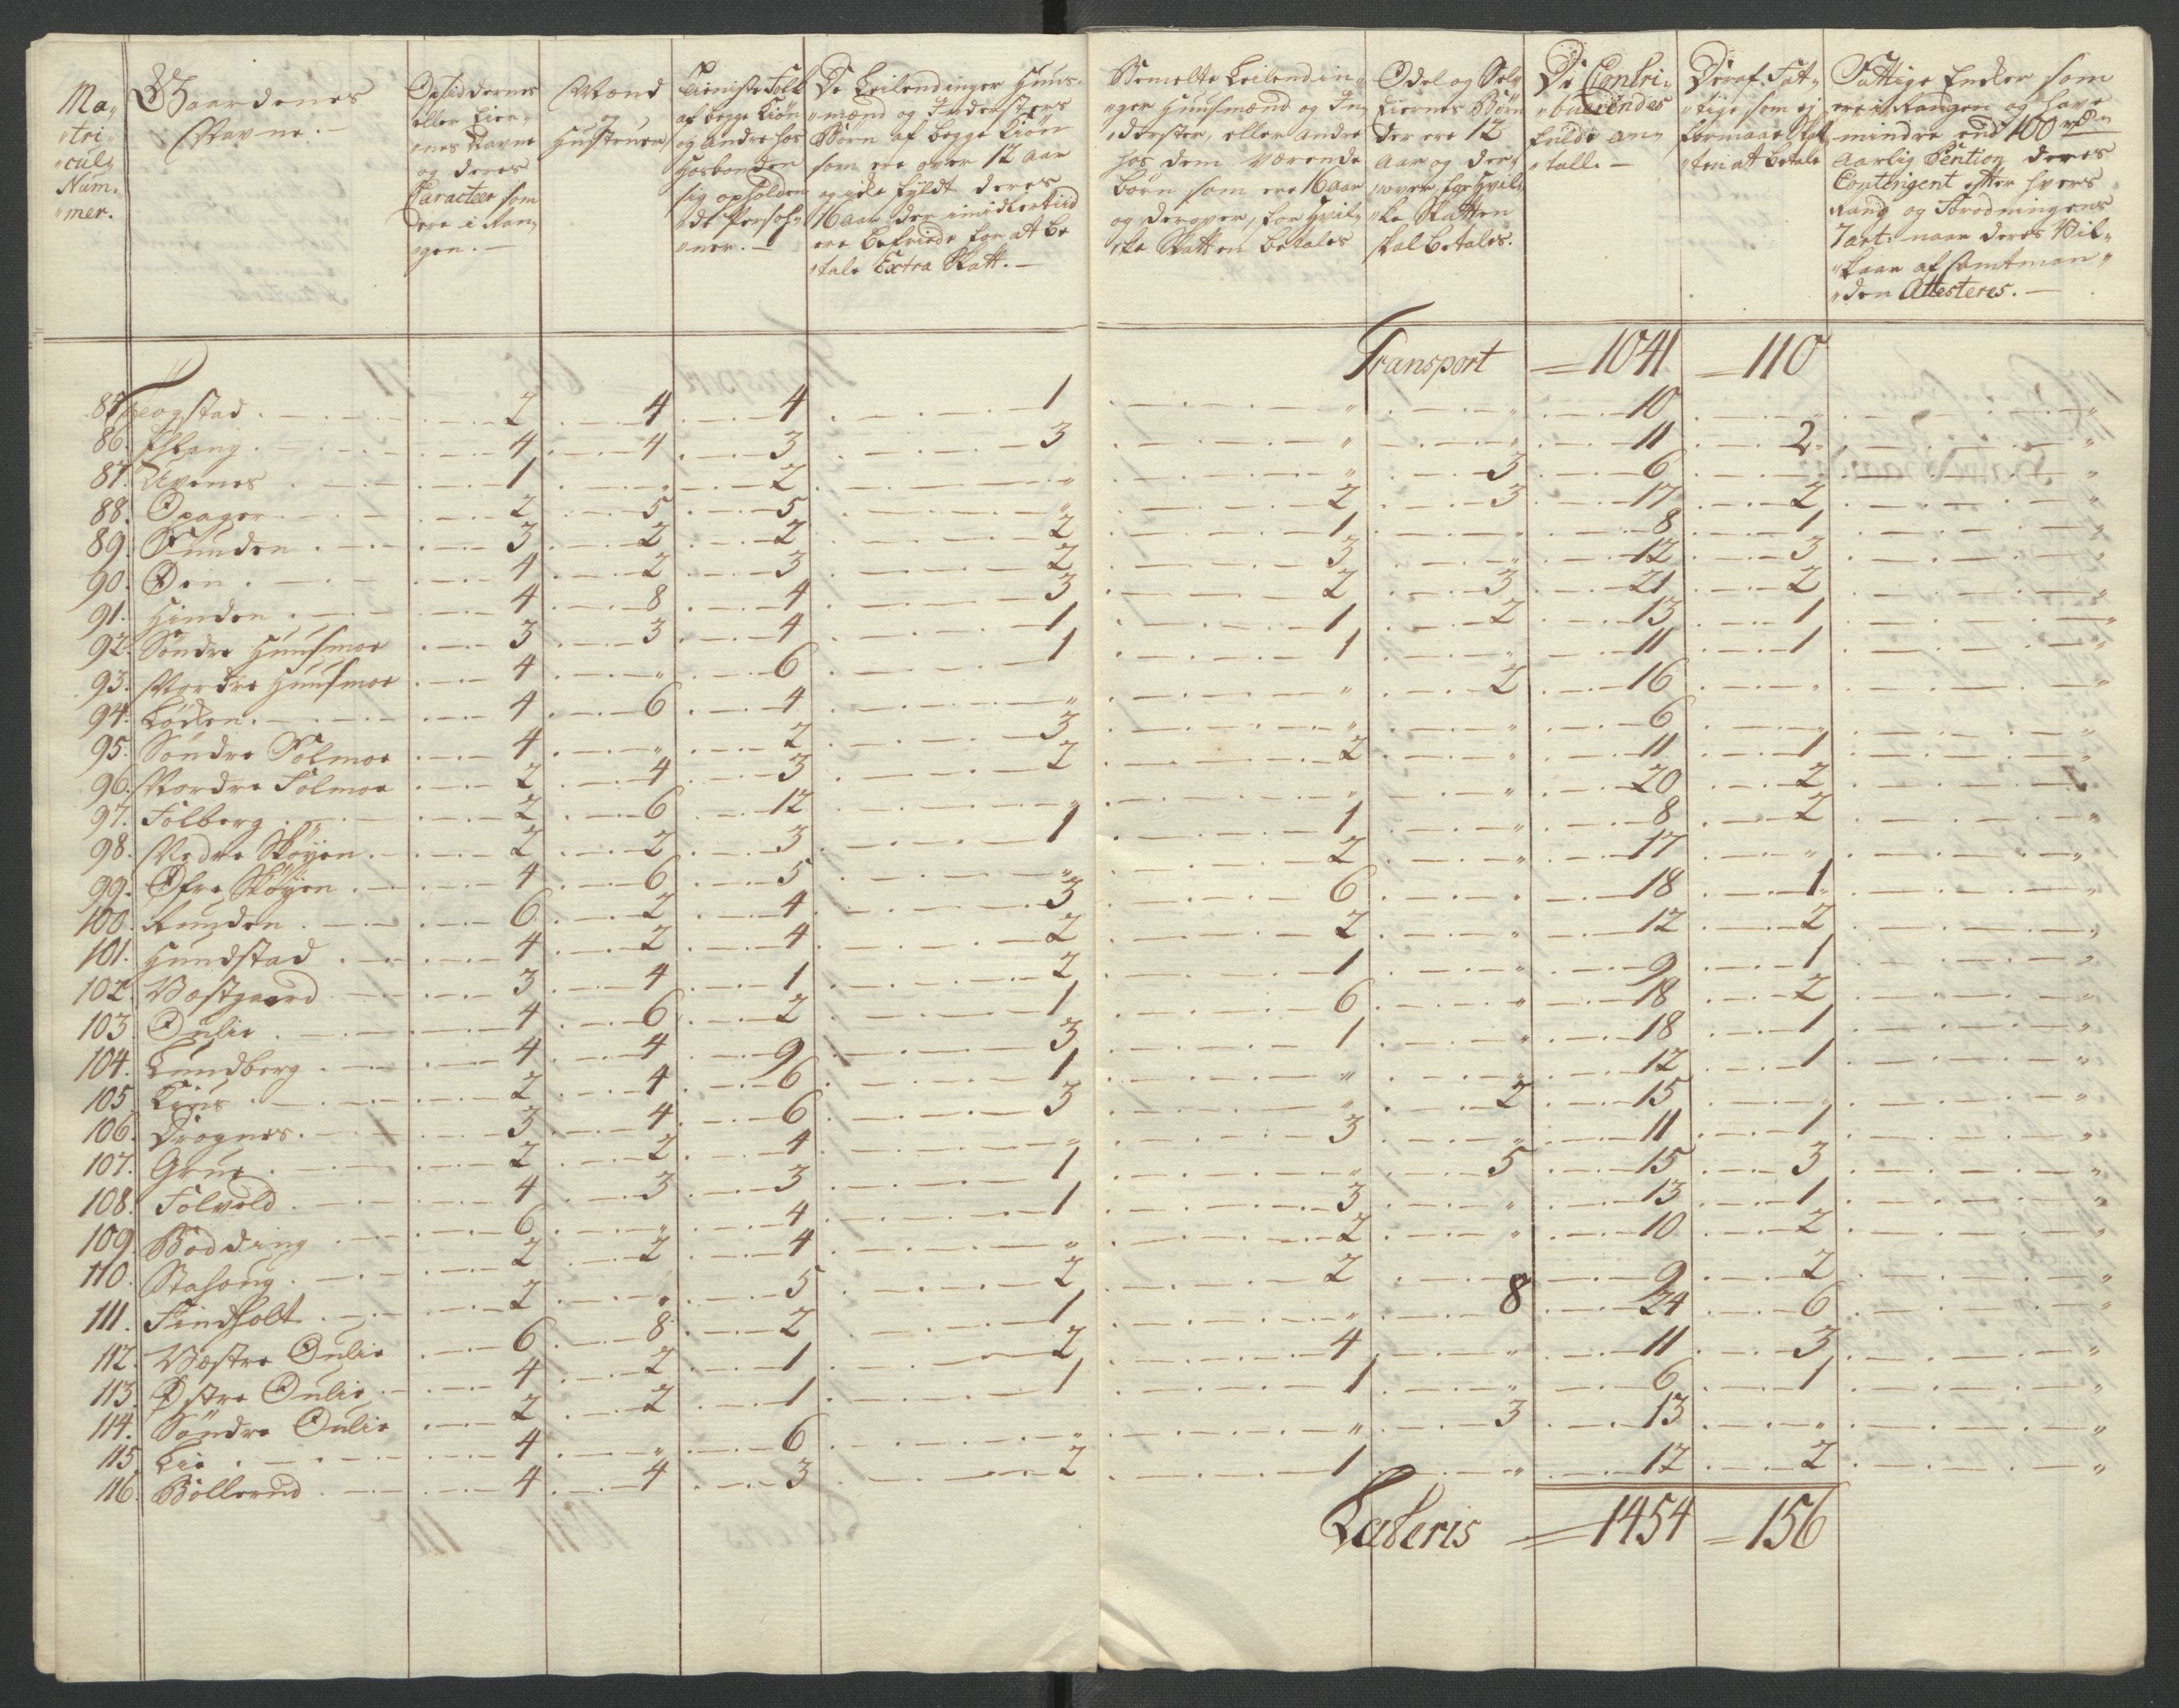 Ma-
"tri-
"cul:
Num-
"mer.
Gaardenes
Navne. -
Opsiddernes
eller Eier-
"nes Navne
og deres
Caracteer som
ere i Ran-
"gen. -
Mænd
og
Hustruer
Tieniste Folk
af begge Kiøn
og andre hos
Hosbonden
sig opholden
"de Persoh-
"ner. -
De Leilendinger Huus-
"mænd og Indersters
Børn af begge Kiøn
som ere over 12 Aar
og icke fyldt deres
16 Aar der imidlertiid
ere befriede for at be
"tale Extra Skatt. -
Bemelte Leilendin-
"ger Huusmænd og In-
"derster, eller andre
hos dem værende
Børn som ere 16 Aar
og derover, for hvil-
"cke Skatten betales
Odel og Sel-
Eiernes Børn
der ere 12
Aar og der-
"over, for hvil-
"ke Skatten
skal betales.
De Contri-
"buerendes
fulde An-
"tall. -
Deraf Fat-
"tige som ej
formaar Skat
"ten at betale
Fattige Enker som
ere i Rangen og have
mindre end 100 rdr
Aarlig Pention deres
Contingent efter hvers
Rang og Forordningens
7 art: naar deres Vil-
"kaar af Amtman-
"den Attesteres. -
Transport = 1041 = 110
85. Frogstad 2 4 4 1 " " 10 " "
86. Eskang 4 4 3 3 " " 11 2 "
87. Udnes 1 " 2 " " 3 6 " "
88. Opager 2 5 5 " 2 3 17 2 "
89. Funden 3 2 2 2 1 " 8 1 "
90. Øen 4 2 3 2 3 " 12 3 "
91. Hinden 4 8 4 3 2 3 21 2 "
92. Søndre Huusmoe 3 3 4 1 1 2 13 1 "
93. Nordre Huusmoe 4 " 6 1 1 " 11 1 "
94. Løcken 4 6 4 " " 2 16 " "
95. Søndre Folmoe 4 " 2 3 " " 6 " "
96. Nordre Folmoe 2 4 3 2 2 " 11 1 "
97. Folberg 2 6 12 " " " 20 2 "
98. Nedre Skøyen 2 2 3 1 1 " 8 2 "
99. Øfre Skøyen 4 6 5 " 2 " 17 " "
100. Runden 6 2 4 3 6 " 18 1 "
101. Hundstad 4 2 4 2 2 " 12 2 "
102. Vestgaard 3 4 1 2 1 " 9 1 "
103 Oulie 4 6 2 1 6 " 18 2 "
104. Lundberg 4 4 9 3 1 " 18 1 "
105 Kiüs 2 4 6 1 " " 12 1 "
106. Drognes 3 4 6 3 " 2 15 " "
107. Grue 2 2 4 " 3 " 11 1 "
108. Folvold 4 3 3 1 " 5 15 3 "
109. Bodding 6 " 4 1 3 " 13 1 "
110. 2 2 4 " 2 " 10 2 "
111. Findholt 2 " 5 2 2 " 9 2 "
112. Vestre Oulie 6 8 2 1 " 8 24 6 "
113. Østre Oulie 4 2 1 2 4 " 11 3 "
114. Søndre Oulie 2 2 1 1 1 " 6 1 "
115 Lie 4 " 6 " " 3 13 " "
116. Bøllerud 4 4 3 2 1 " 12 2 "
Lateris = 1454 = 156